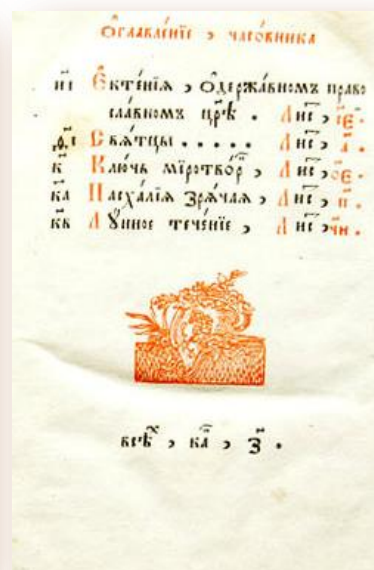 Ѻглавле́нїе , часо́вника
и҃і Е҆ктенїѧ̀ , ѡ҆держа́вномъ право
сла́вномъ цр҃ѣ . Лис̾ ,
Свѧ́тцы . . . . . Лис̾ , а҃ .
к҃ Клю́чь мїротво́р , Лис̾ , о҃е .
к҃а Пасха́лїѧ зрѧ́чаѧ , Лис̾ , п҃ .
к҃в Лꙋ́нное тече́нїе , Лис̾ , ч҃и .
всѣ́х , к҃а , з҃ .